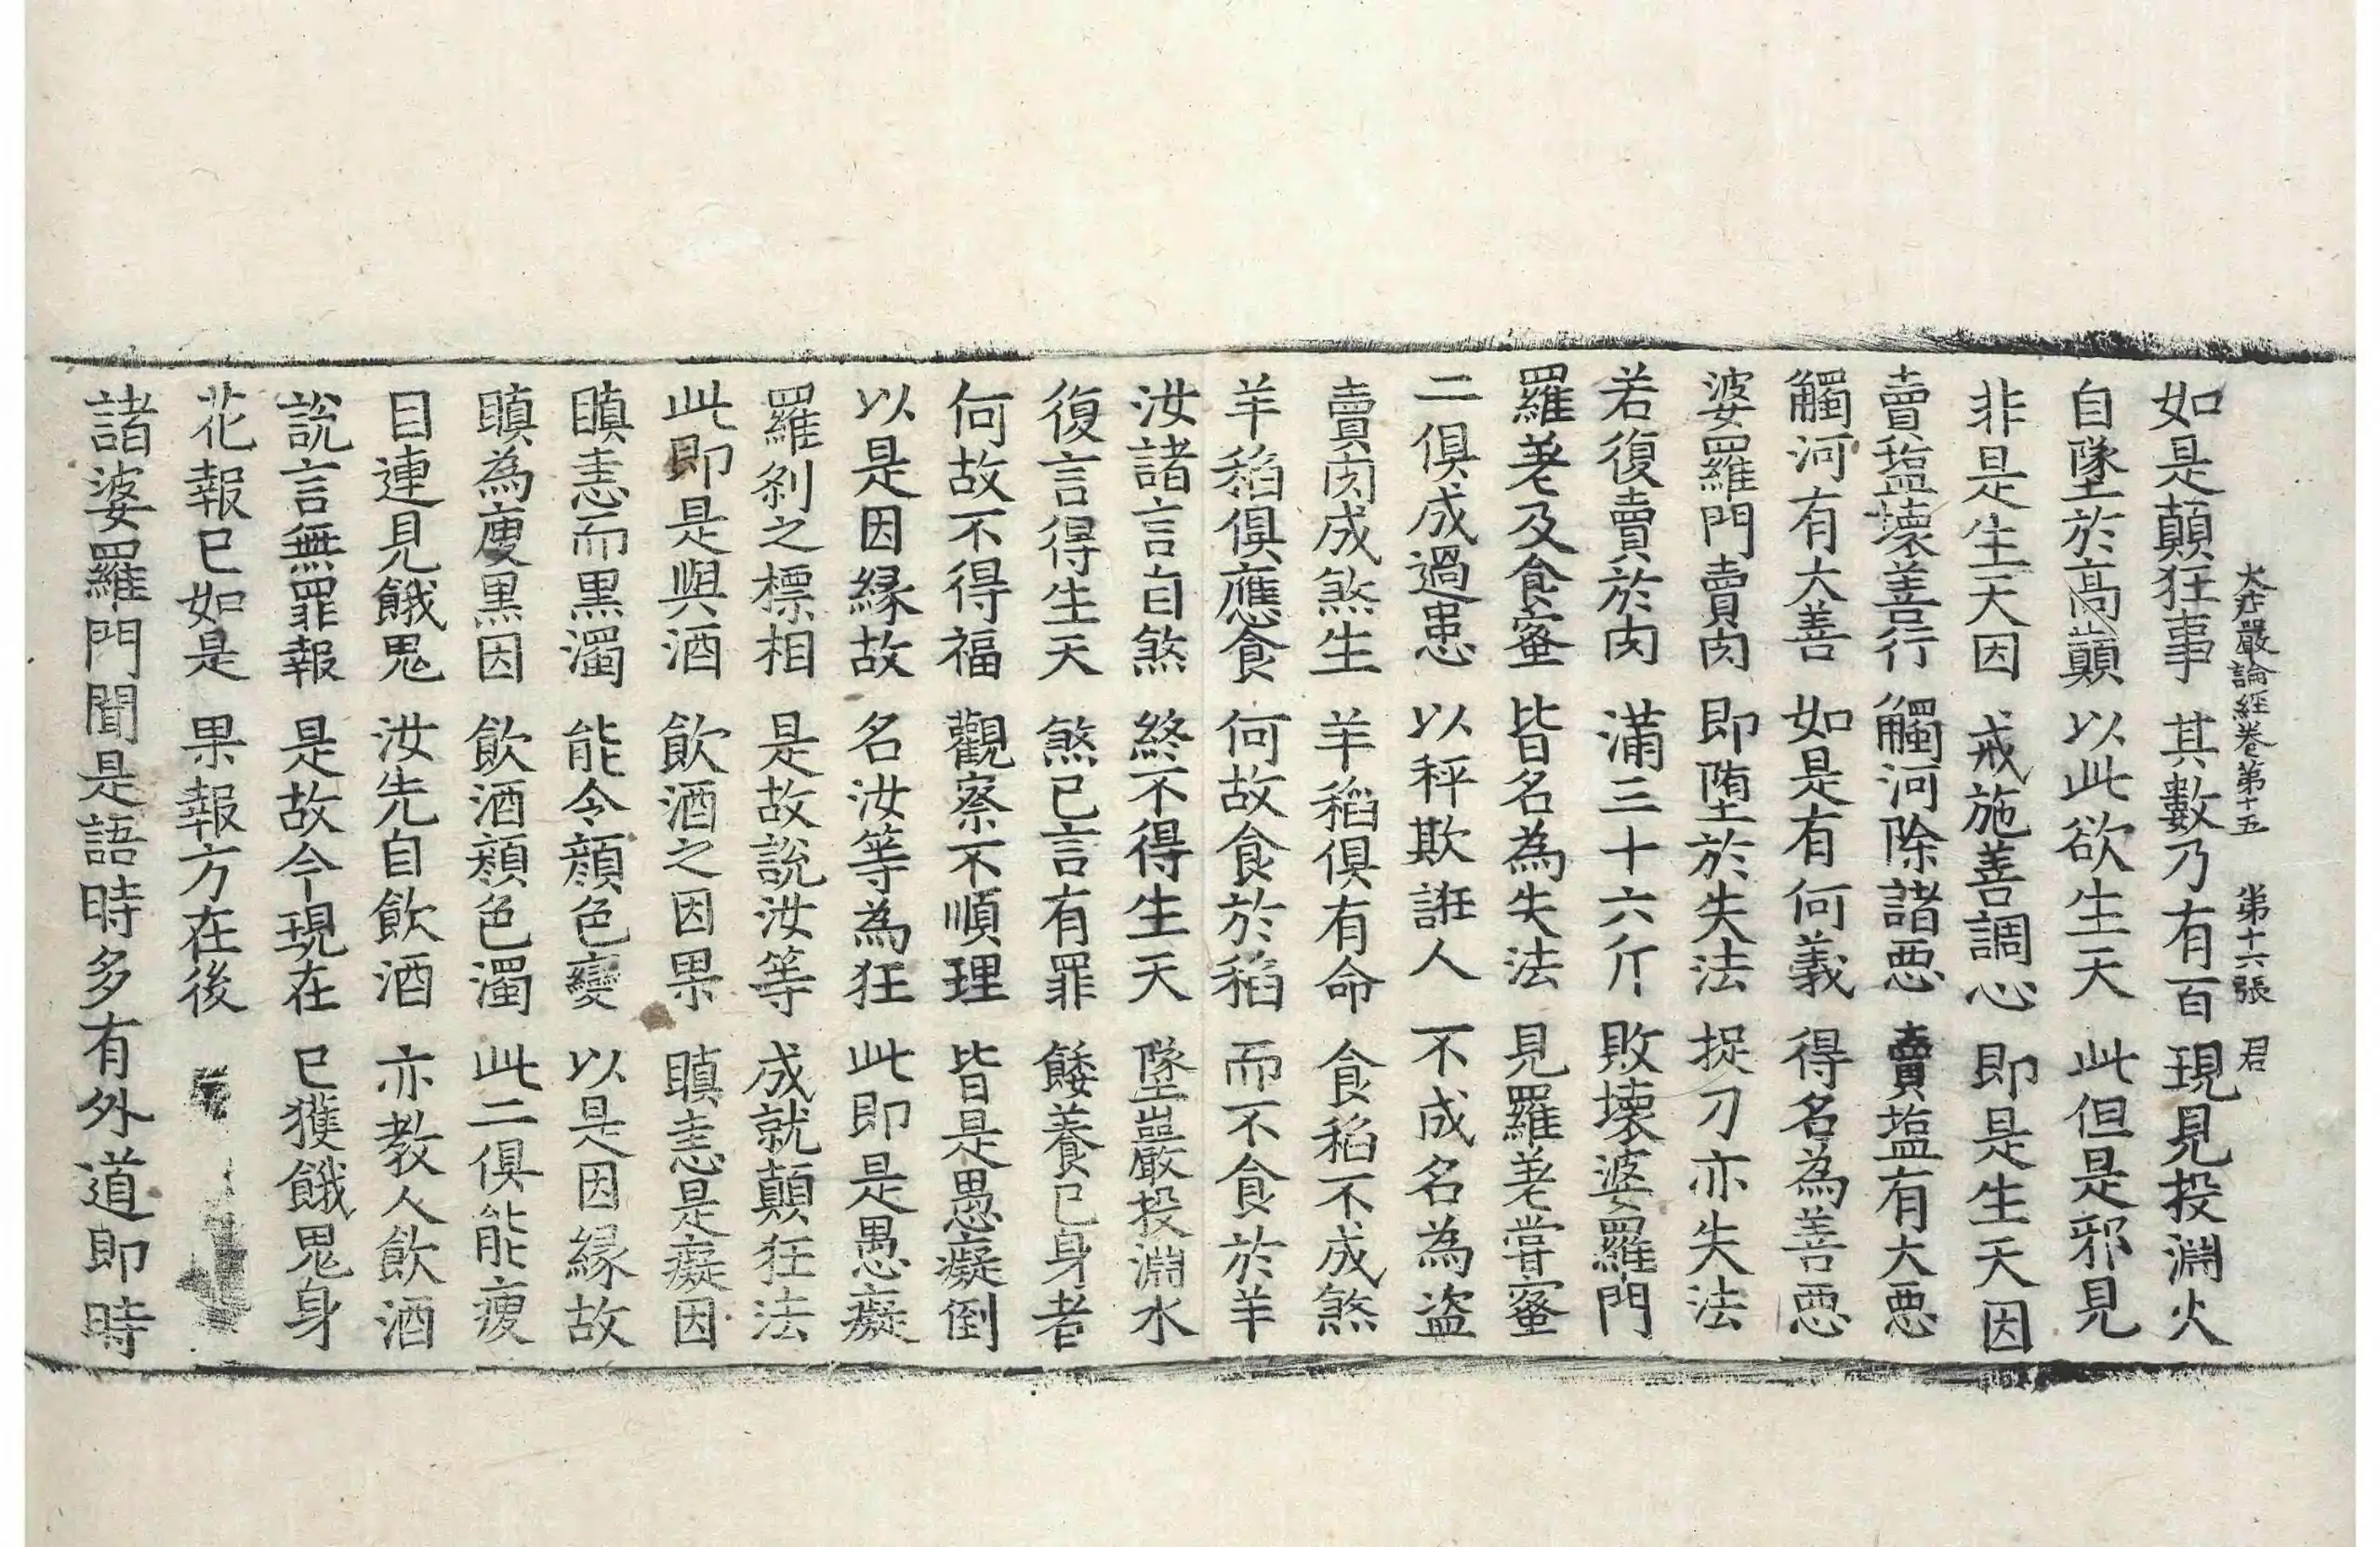 大庄嚴論經卷第十五　第十六張　君
如是顛狂事　其數乃有百　現見投淵火
自墜於高巓　以此欲生天　此但是邪見
非是生天因　戒施善調心　即是生天因
賣塩壊善行　觸河除諸惡　賣塩有大惡
觸河有大善　如是有何義　得名為善惡
婆羅門賣肉　即堕於失法　捉刀亦失法
若復賣於肉　滿三十六斤　敗壊婆羅門
羅差及食蜜　皆名為失法　見羅差甞蜜
二俱成過患　以秤欺誑人　不成名為盗
賣肉成煞生　羊稻俱有命　食稻不成煞
羊稻俱應食　何故食於稻　而不食於羊
汝諸言自煞　終不得生天　墜巖投淵水
復言得生天　煞己言有罪　餧養己身者
何故不得福　觀察不順理　皆是愚癡倒
以是因縁故　名汝等為狂　此即是愚癡
羅剎之標相　是故說汝等　成就顛狂法
此即是與酒　飲酒之因果　瞋恚是癡因
瞋恚而黒濁　能令顔色變　以是因縁故
瞋為瘦黒因　飲酒顔色濁　此二俱能瘦
目連見餓鬼　汝先自飲酒　亦教人飲酒
說言無罪報　是故今現在　已獲餓鬼身
花報已如是　果報方在後
諸婆羅門聞是語時多有外道即時